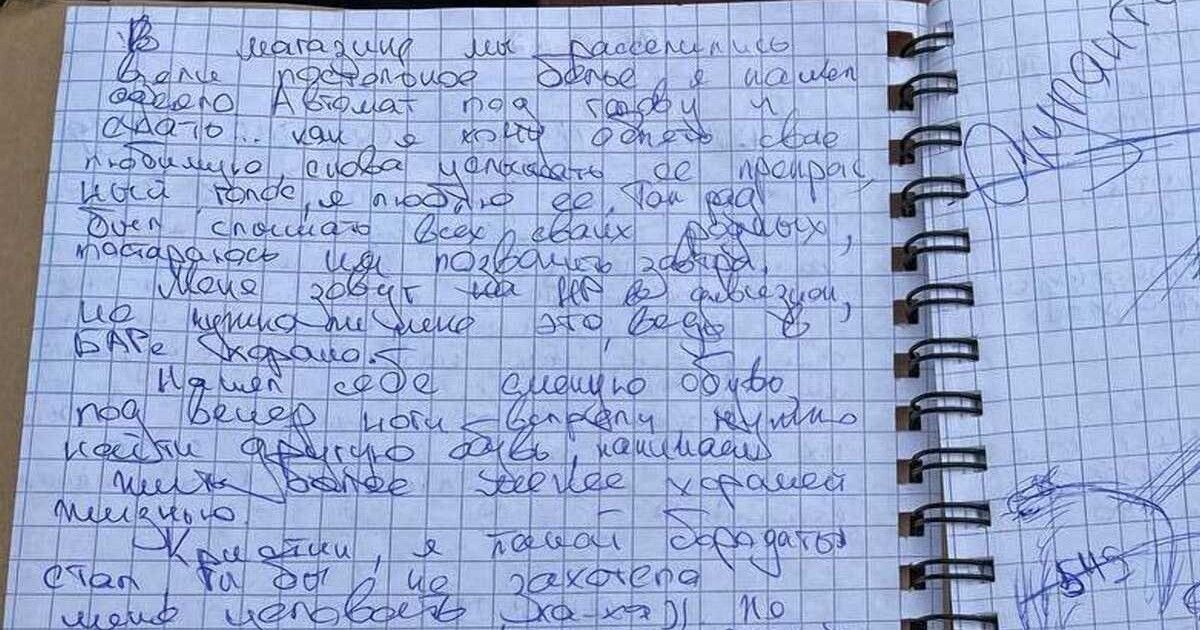 В магазине мы расселились
взяли постельное белье я нашел
одеяло Автомат под голову и
спать.. как я хочу обнять свае
любимую, снова целывать ее прекрас
ное тело, я люблю ее. Так рад
был слышать всех своих родных,
постараюсь им позванить завтра.
Меня зовут на в
не нужно мне это, ведь в
БАРе хорашо.
Нашел себе сменую обувь,
под вечер ноги нужно
найти другую обувь, начинаем
жить более менее хорашей
жизнью.
Кристин, я такой бородаты
стал ты бы не захотела
меня целовать Ха-ха)) но
545